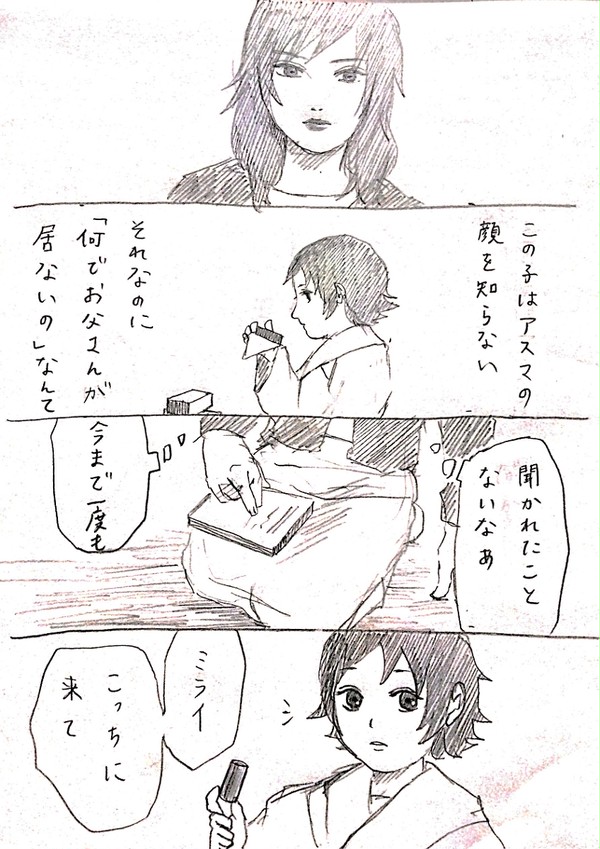 この子はアスマの
顔を知らない
それなのに
「何でお父さんが
居ないの」なんて
聞かれたこと
ないなあ
今まで一度も
ミライ
こっちに
来て